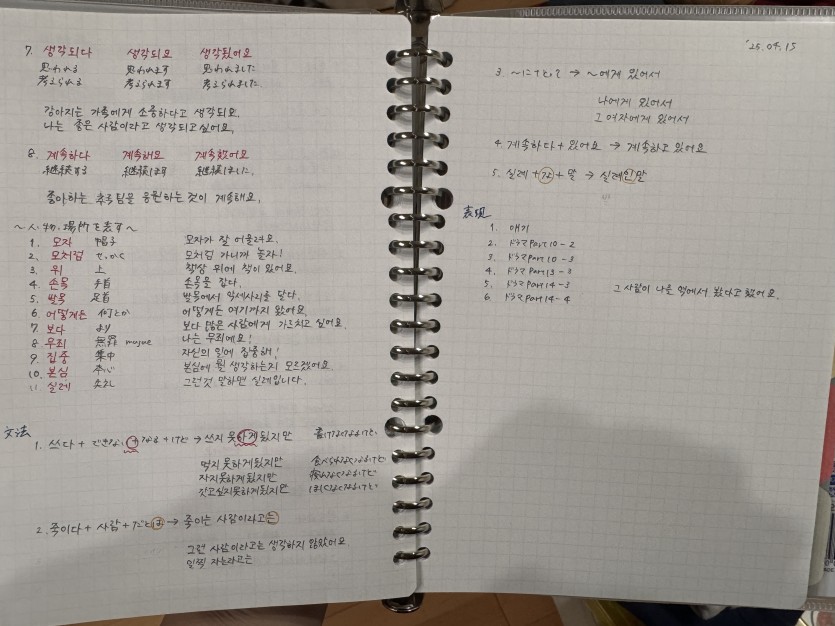 7. 생각되다 생각되요 생각됬어요
思われる 思われます 思われました
考えられる 考えられます 考えられました
강아지는 가족에게 소중하다고 생각되요.
나는 좋은 사람이라고 생각되고싶어요.
8. 계속하다 계속해요 계속했어요
継続する 継続します 継続しました.
좋아하는 축구팀을 응원하는 것이 계속해요.
〜人・物・場所を表す〜
1. 모자 帽子 모자가 잘 어울려요.
2. 모처럼 せっかく 모처럼 가니까 놀자!
3. 위 上 책상 위에 책이 있어요.
4. 손목 手首 손목을 잡다.
5. 발목 足首 발목에서 악세사리를 달다.
6. 어떻게든 何とか 어떻게든 여기까지 왔어요.
7. 보다 より 보다 많은 사람에게 가르치고 싶어요.
8. 무죄 無罪 나는 무죄에요!
9. 집중 集中 자신의 일에 집중해!
10. 본심 本心 본심에 뭘 생각하는지 모르겠어요.
11. 실례 失礼 그런것 말하면 실례입니다.
文法
1. 쓰다 + できない + なる + けど → 쓰지 못하게됬지만 書けなくなったけど
먹지 못하게됬지만 食べられなくなったけど
자지못하게됬지만 寝れなくなったけど
갖고싶지못하게됬지만
2. 죽이다 + 사람 + だとは → 죽이는 사람이라고는
그런 사람이라고는 생각하지 않았어요
일찍 자는라고는
'25.04.15
3. 〜にとって → 〜에게 있어서
나에게 있어서
그 여자에게 있어서
4. 계속하다 + 있어요 → 계속하고 있어요
5. 실례 + + 말 → 실례인말
表現
1. 얘기
2. ドラマPart10-2
3. ドラマPart10-3
4. ドラマPart13-3
5. ドラマPart14-3 그 사람이 나를 역에서 봤다고 했어요.
6. ドラマPart14-4